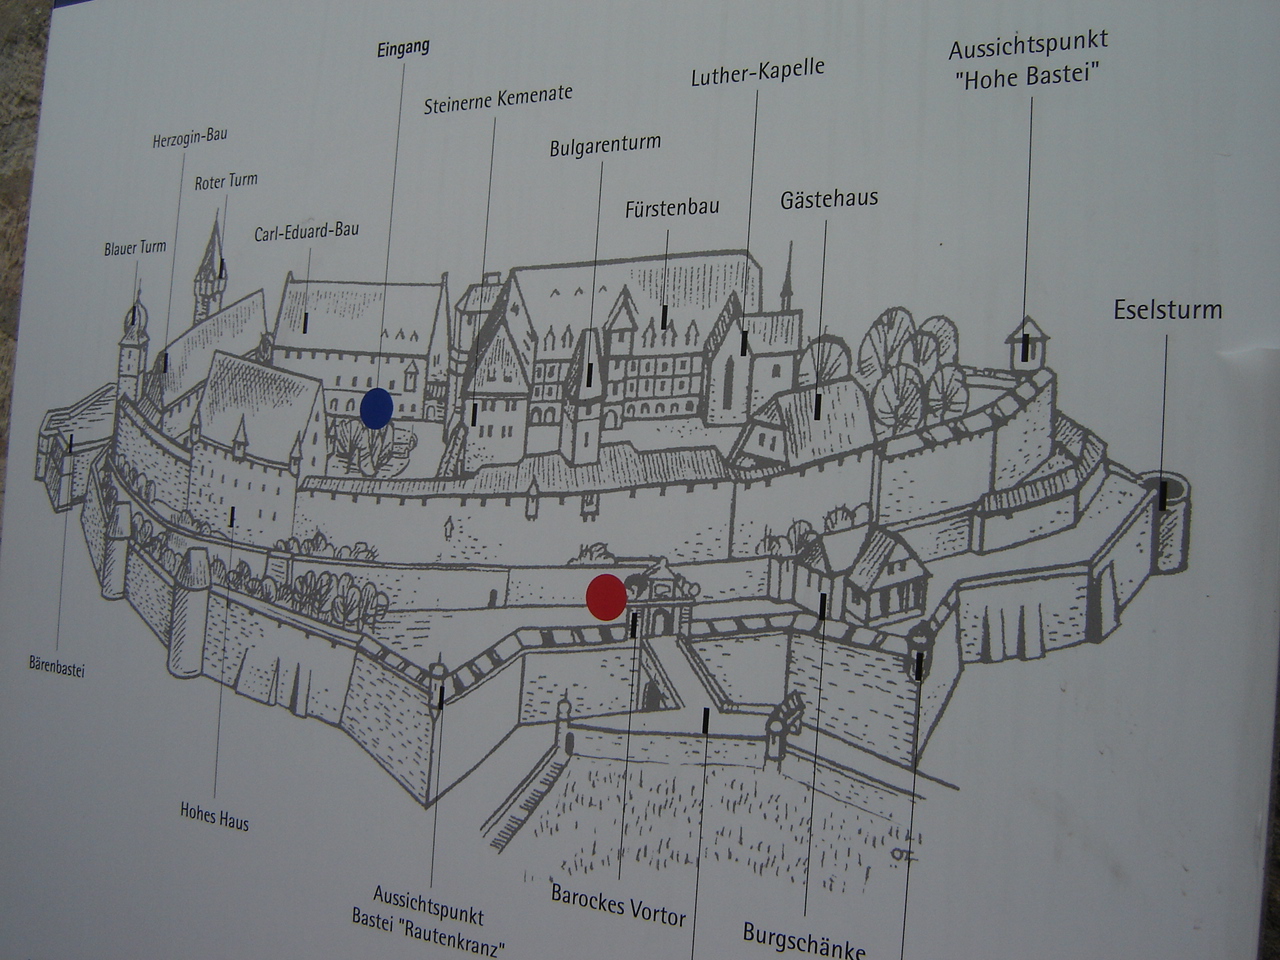 Eingang
Luther-Kapelle
Aussichtspunkt
"Hohe Bastei"
Steinerne Kemenate
Herzogin-Bau
Bulgarenturm
Roter Turm
Fürstenbau
Gästehaus
Blauer Turm
Carl-Eduard-Bau
Eselsturm
Bärenbastei
Hohes Haus
Aussichtspunkt
Bastei "Rautenkranz"
Barockes Vortor
Burgschänke